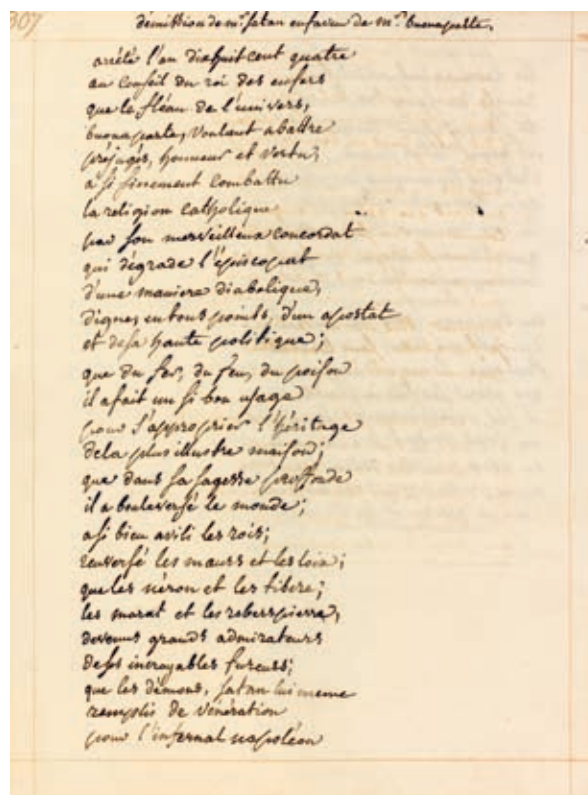 307
démission de mr. satan en faveur de mr. buonaparte.
arrêté l'an dixhuit cent quatre
au conseil du roi des enfers
que le fléau de l'univers,
buonaparte, voulant abattre
préjugés, honneur et vertu,
a si finement combattu
la religion catholique
par son merveilleux concordat
qui dégrade l'épiscopat
d'une maniere diabolique,
dignes, en tous points, d'un apostat
et de sa haute politique;
que du fer, du feu, du poison
il a fait un si bon usage
pour s'approprier l'héritage
de la plus illustre maison;
que dans sa sagesse proffonde
il a bouleversé le monde;
a si bien avili les rois;
renversé les mœurs et les loix;
que les néron et les tibere,
les marat et les roberspierre,
devenus grands admirateurs
de ses incroyables fureurs;
que les démons, satan lui meme
remplis de vénération
pour l'infernal napoléon